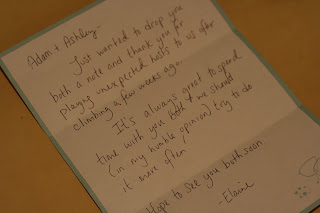 Adam & Ashley-
Just wanted to drop you
both a note and thank you for
playing unexpected hosts to us after
climbing a few weeks ago.
It's always great to spend
time with you both & we should
(in my humble opinion) try to do
it more often!
Hope to see you both soon
-Elaine